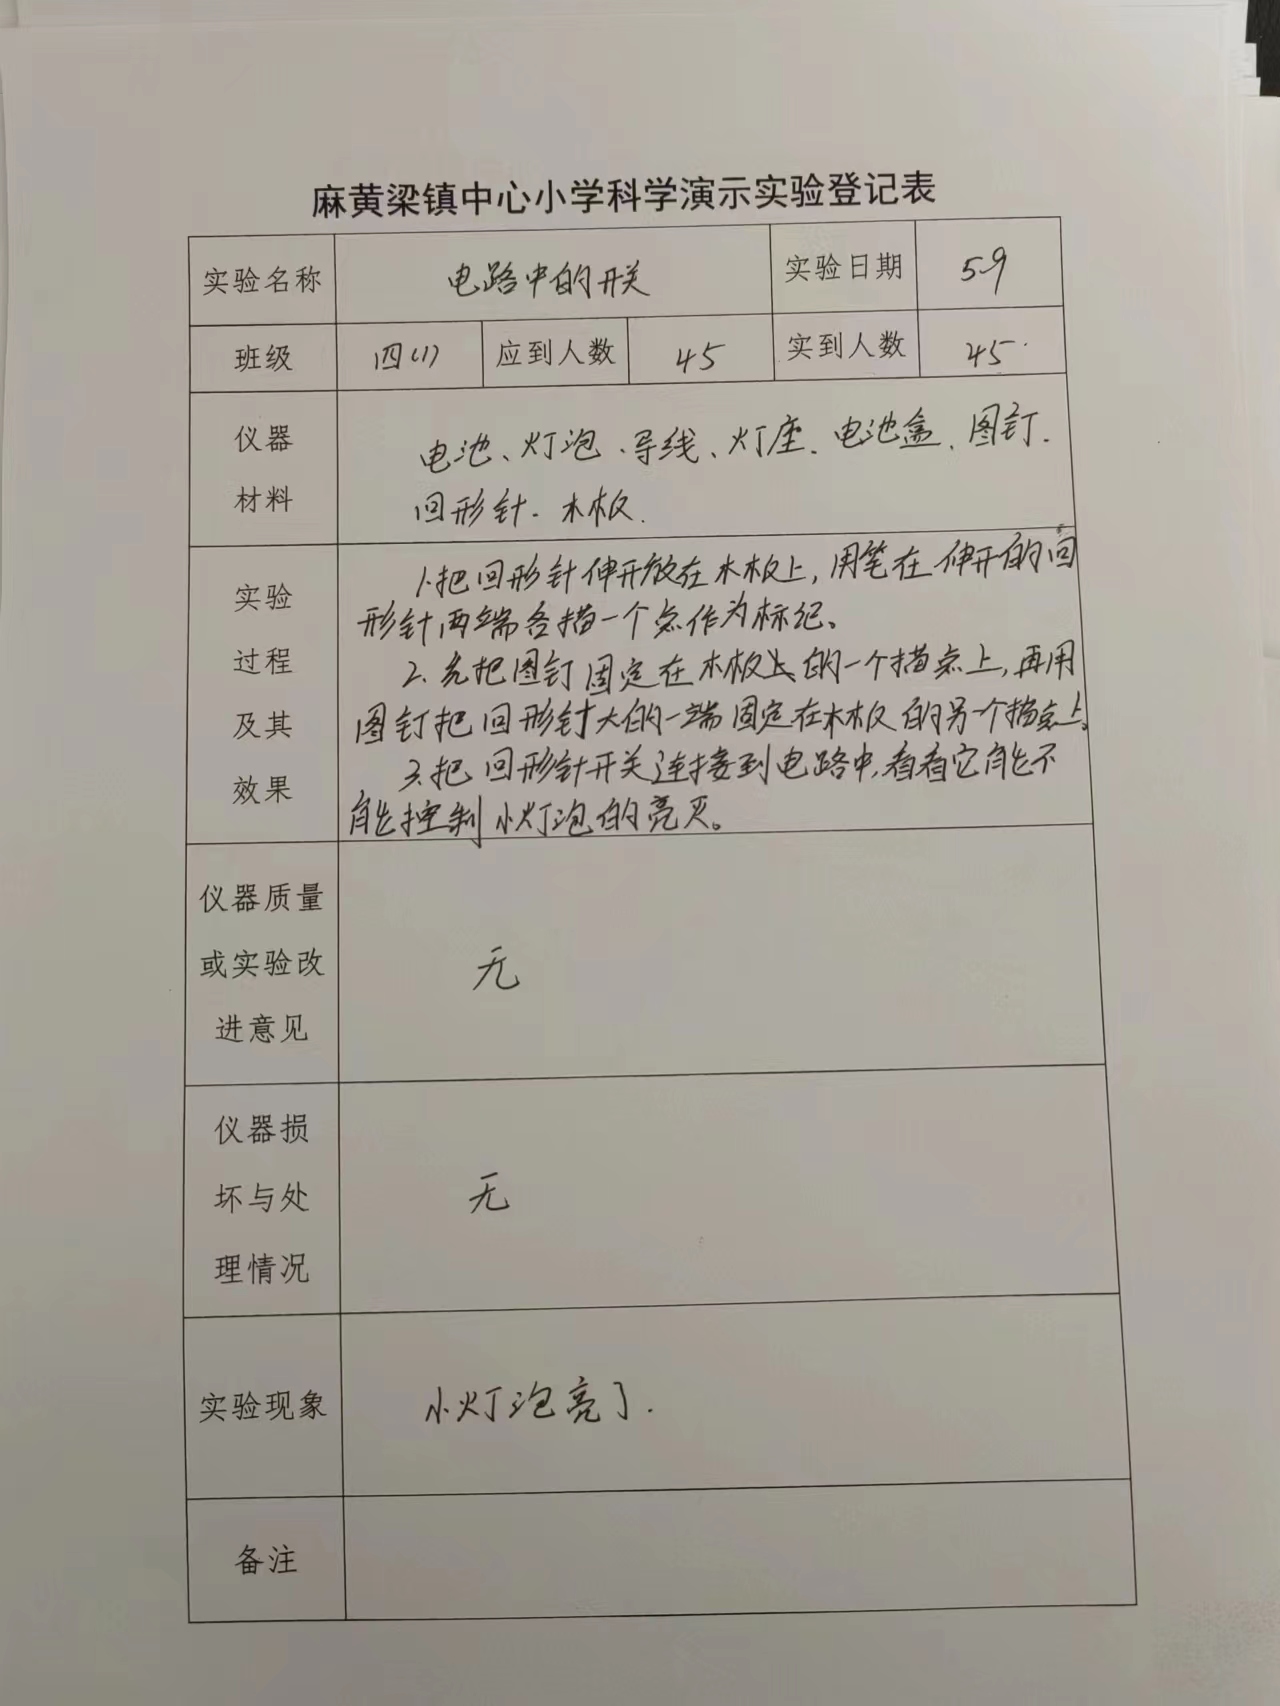 麻黄梁镇中心小学科学演示实验登记表
实验名称 电路中的开关 实验日期 5.9
班级 四(1) 应到人数 45 实到人数 45.
仪器
材料
电池、灯泡、导线、灯座、电池盒、图钉、
回形针、木板.
实验
过程
及其
效果
1.把回形针伸开放在木板上,用笔在伸开的回
形针两端各描一个点作为标记。
2.先把图钉固定在木板上的一个描点上,再用
图钉把回形针大的一端固定在木板的另一个描点上。
3.把回形针开关连接到电路中,看看它能不
能控制小灯泡的亮灭。
仪器质量
或实验改
进意见
无
仪器损
坏与处
理情况
无
实验现象 小灯泡亮了.
备注